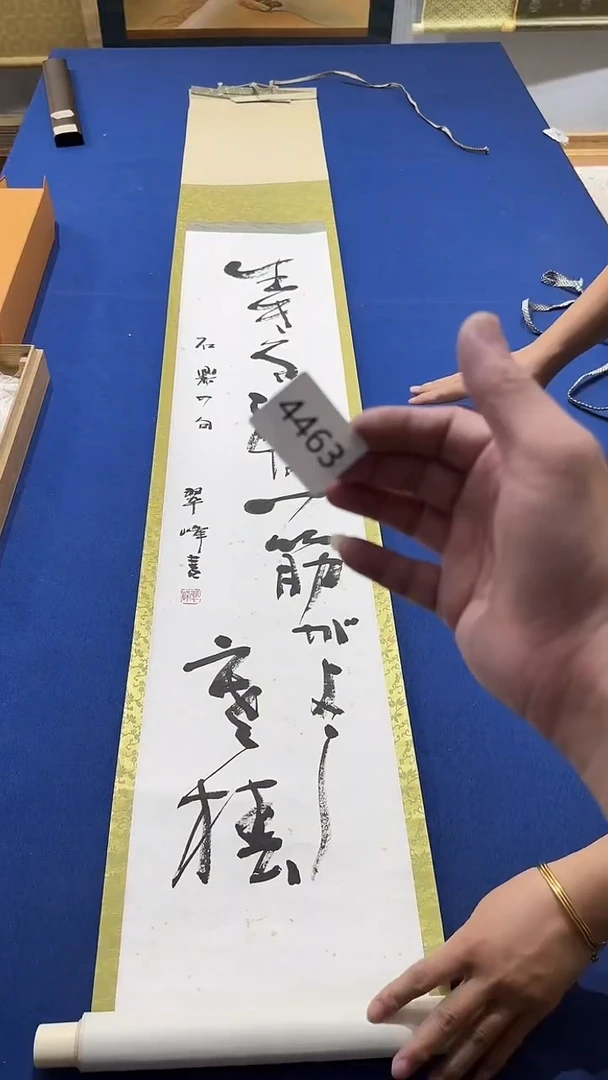 生きる
一筋がよし
寒椿
石鼎の句 翠峰書
4463